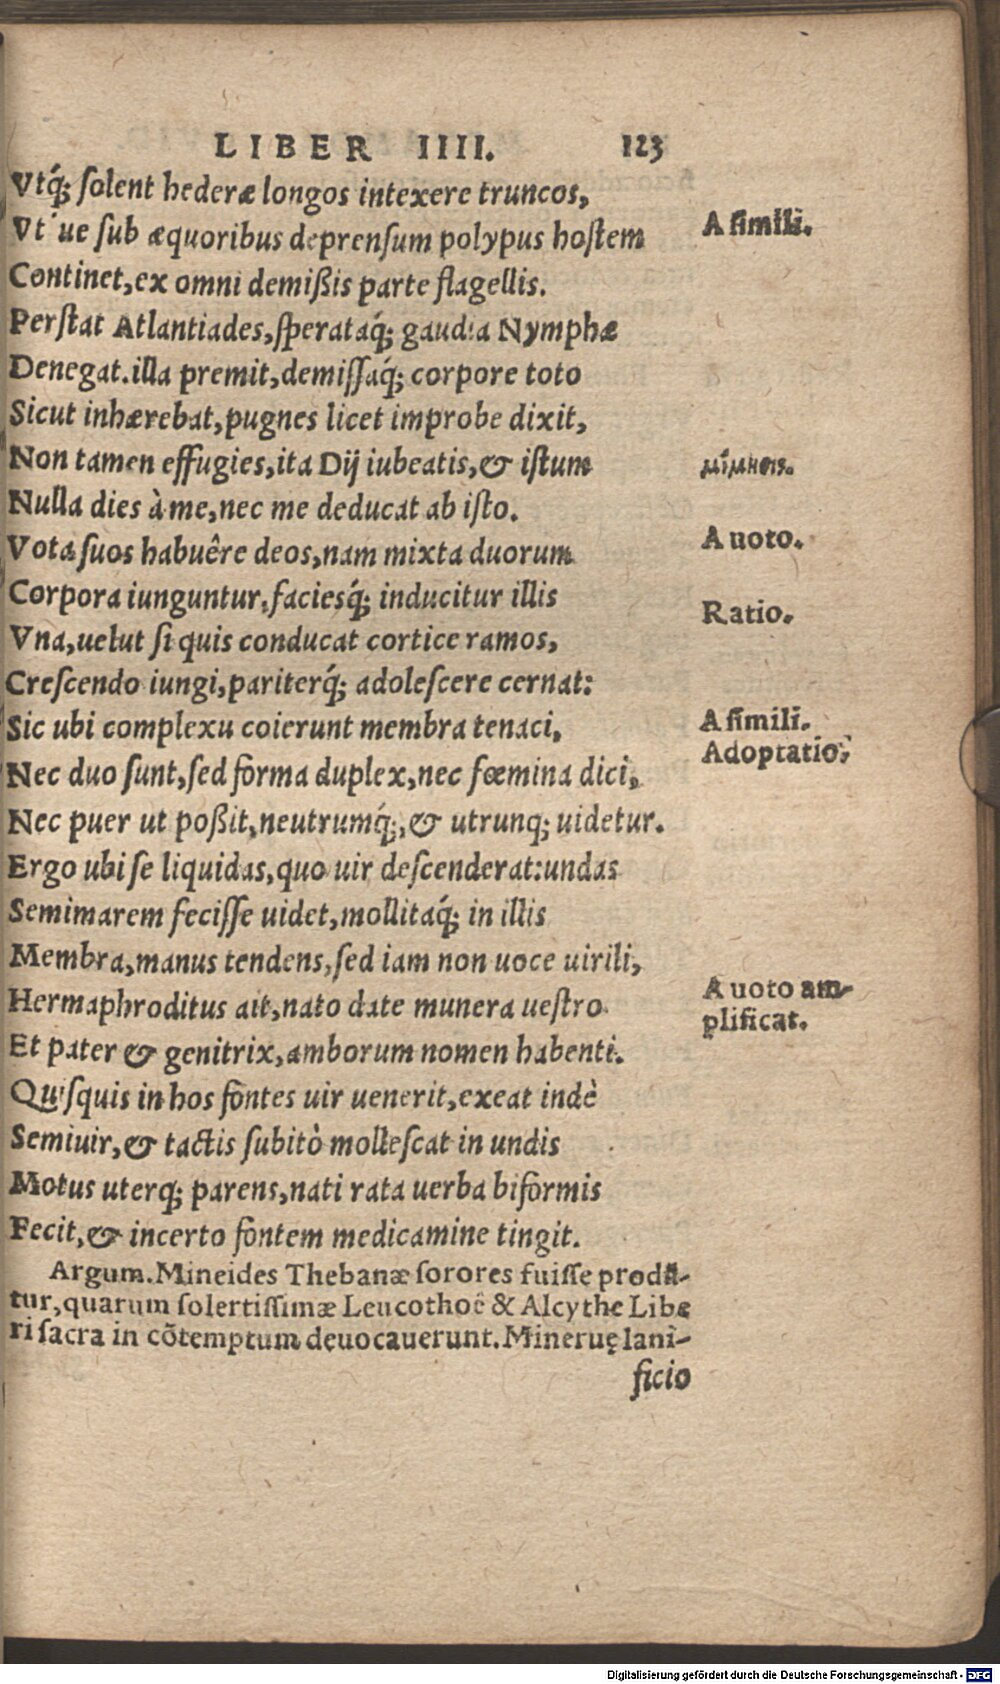 LIBER IIII. 123
Vtq́; ſolent hederæ longos intexere truncos,
Vt'ue ſub æquoribus deprenſum polypus hoſtem
A ſimili.
Continet,ex omni demißis parte flagellis.
Perſtat Atlantiades,ſperataq́; gaudia Nymphæ
Denegat.illa premit,demiſſaq́; corpore toto
Sicut inhærebat,pugnes licet improbe dixit,
Non tamen effugies,ita Dij iubeatis,& iſtum
μίμησις.
Nulla dies à me,nec me deducat ab iſto.
Vota ſuos habuêre deos,nam mixta duorum
A uoto.
Corpora iunguntur,facieſq́; inducitur illis
Ratio.
Vna,uelut ſi quis conducat cortice ramos,
Creſcendo iungi,pariterq́; adoleſcere cernat:
Sic ubi complexu coierunt membra tenaci,
A ſimili.
Adoptatio.
Nec duo ſunt,ſed forma duplex,nec fœmina dici,
Nec puer ut poßit,neutrumq́;,& utrunq; uidetur.
Ergo ubi ſe liquidas,quo uir deſcenderat:undas
Semimarem feciſſe uidet,mollitaq́; in illis
Membra,manus tendens,ſed iam non uoce uirili,
Hermaphroditus ait,nato date munera ueſtro
A uoto am-
plificat.
Et pater & genitrix,amborum nomen habenti.
Quiſquis in hos fontes uir uenerit,exeat indè
Semiuir,& tactis ſubitò molleſcat in undis
Motus uterq; parens,nati rata uerba biformis
Fecit,& incerto fontem medicamine tingit.
Argum.Mineides Thebanæ ſorores fuiſſe produ-
tur,quarum ſolertiſſimæ Leucothoë & Alcythe Libe
ri ſacra in cõtemptum deuocauerunt.Mineruę lani-
ficio
Digitalisierung gefördert durch die Deutsche Forschungsgemeinschaft - DFG